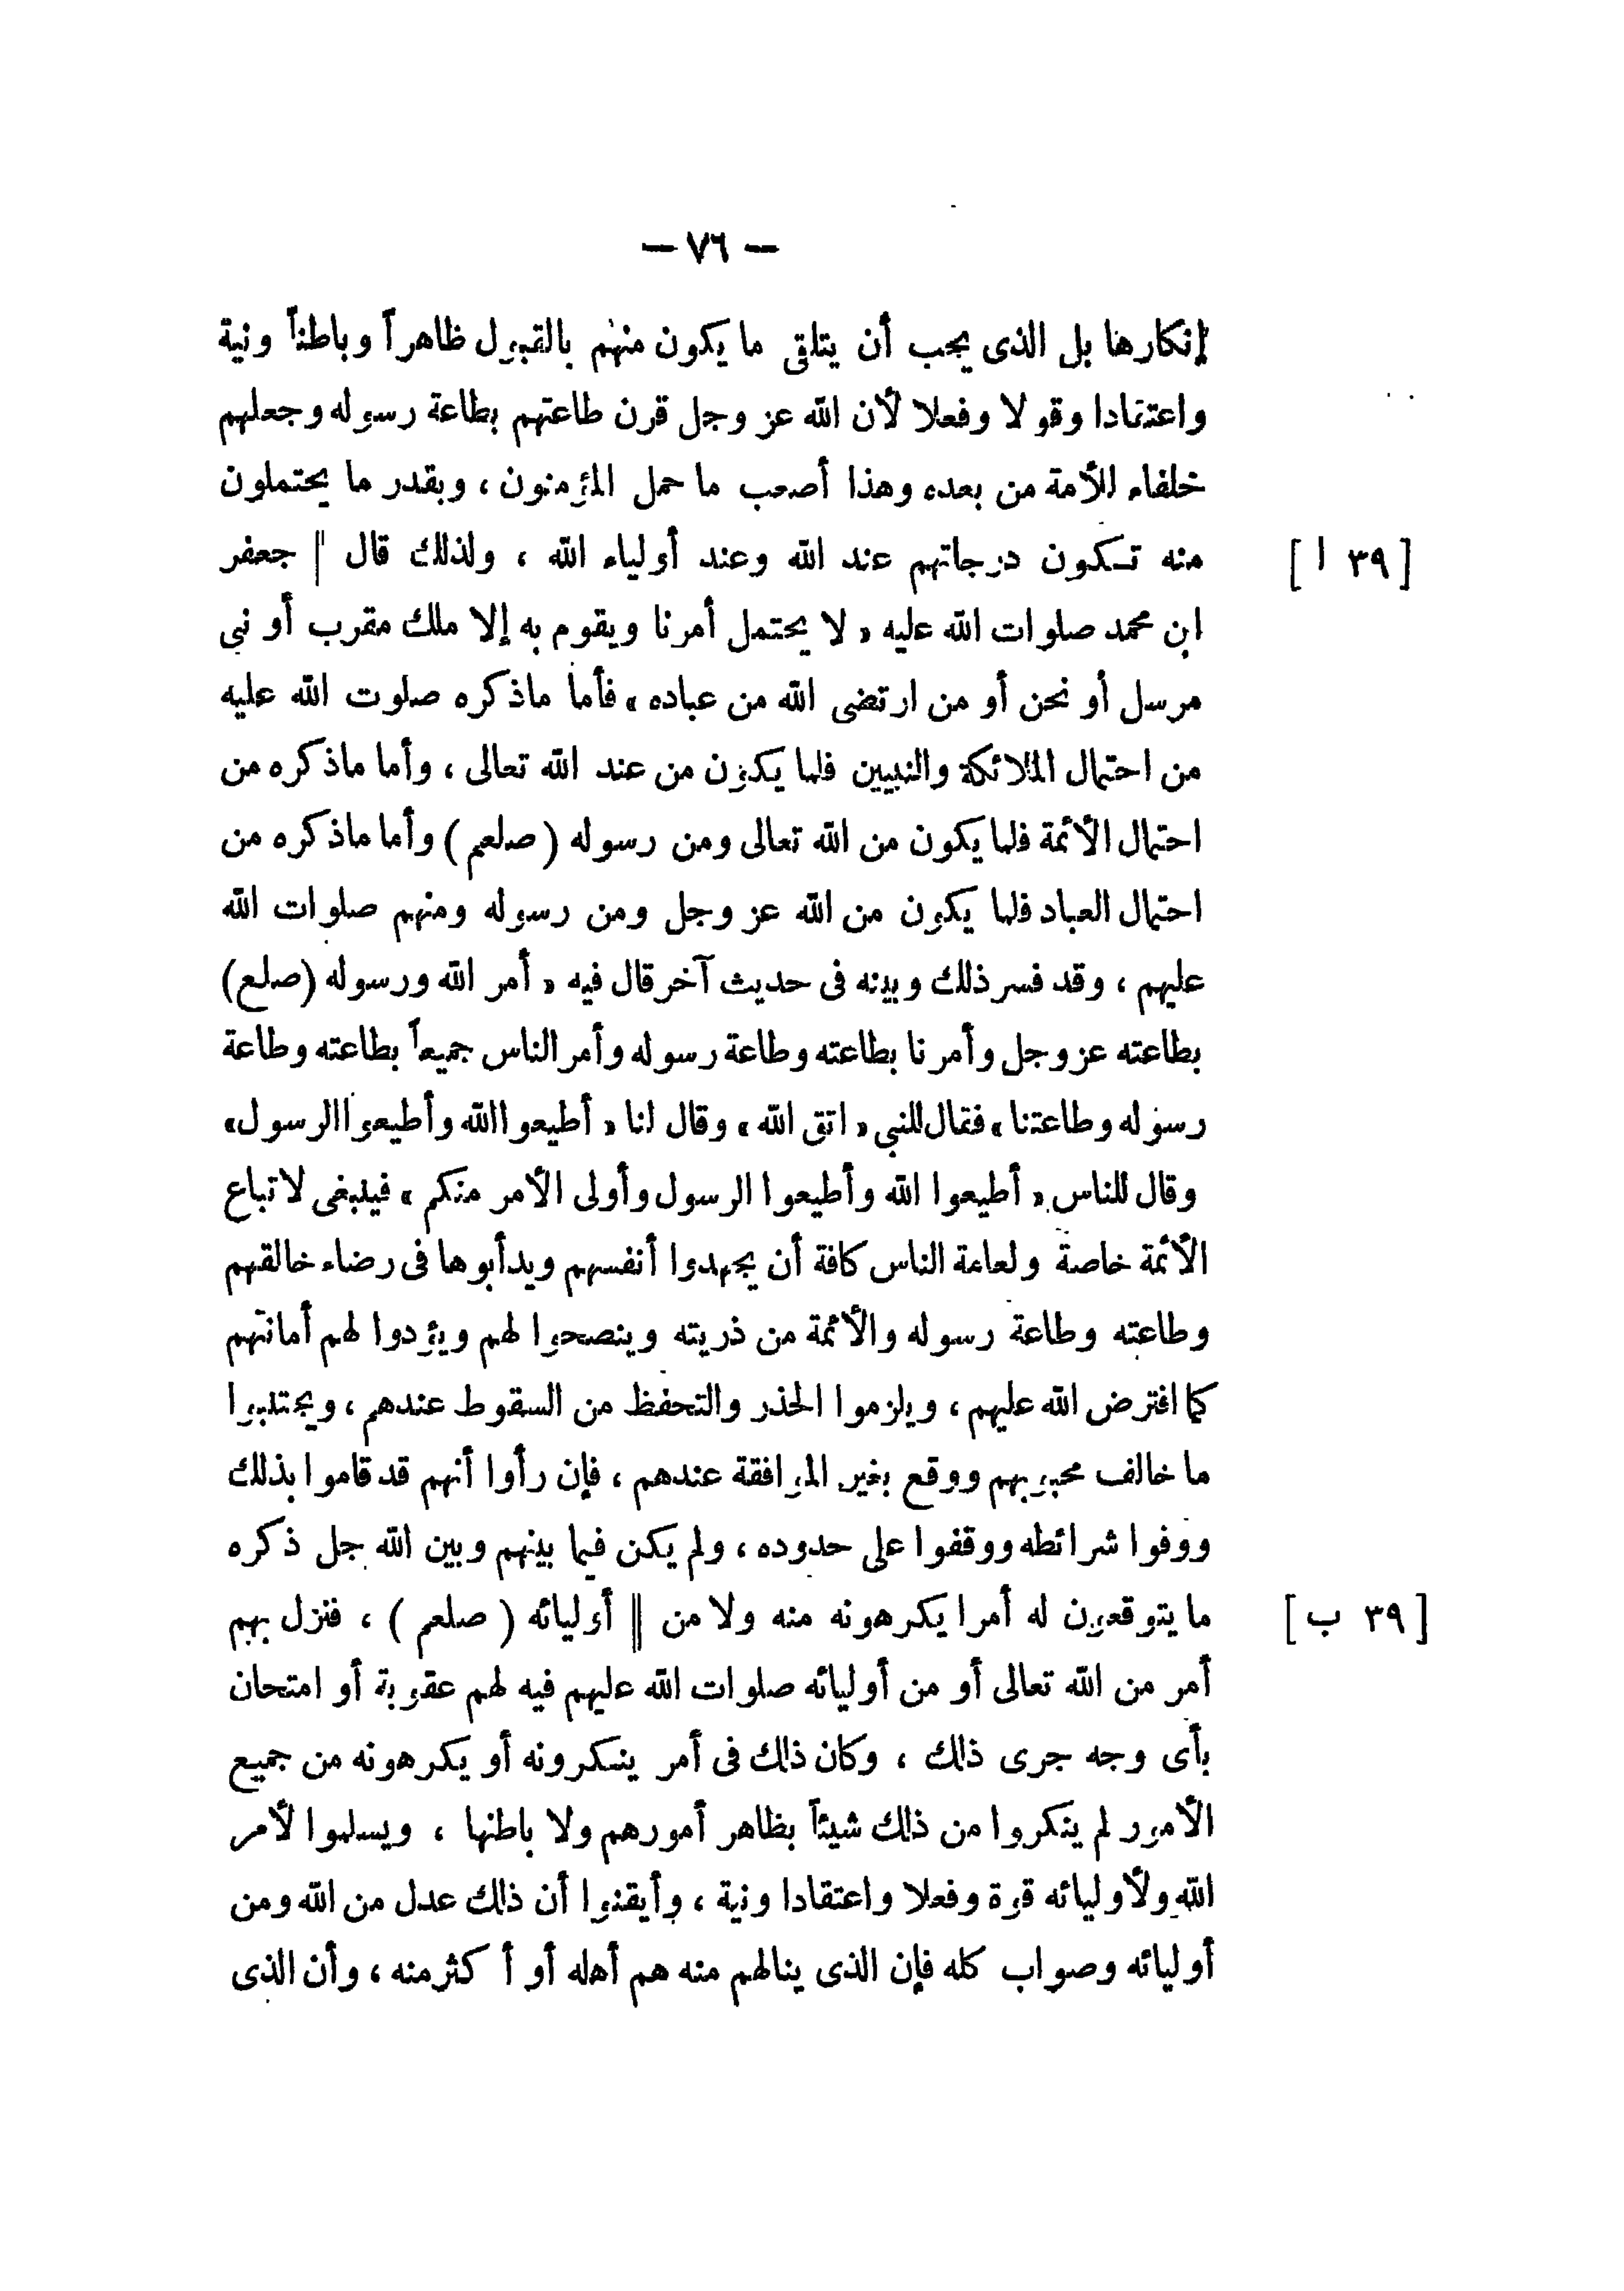 — ٧٦ —
إنكارها بل الذى يجب أن يتلقى ما يكون منهم بالقبول ظاهراً وباطناً ونية
واعتقادا وقولا وفعلا لأن الله عز وجل قرن طاعتهم بطاعة رسوله وجعلهم
خلفاء للأمة من بعده وهذا أصعب ما حمل المؤمنون ، وبقدر ما يحتملون
منه تكون درجاتهم عند الله وعند أولياء الله ، ولذلك قال || جعفر [ ٣٩ ا ]
ابن محمد صلوات الله عليه « لا يحتمل أمرنا ويقوم به إلا ملك مقرب أو نبى
مرسل أو نحن أو من ارتضى الله من عباده » فأما ماذكره صلوت الله عليه
من احتمال الملائكة والنبيين فلما يكون من عند الله تعالى ، وأما ماذكره من
احتمال الأئمة فلما يكون من الله تعالى ومن رسوله ( صلعم ) وأما ماذكره من
احتمال العباد فلما يكون من الله عز وجل ومن رسوله ومنهم صلوات الله
عليهم ، وقد فسر ذلك وبينه فى حديث آخر قال فيه « أمر الله ورسوله (صلع)
بطاعته عز وجل وأمرنا بطاعته وطاعة رسوله وأمر الناس جميعاً بطاعته وطاعة
رسوله وطاعتنا » فقال للنبى « اتق الله » وقال لنا « أطيعوا الله وأطيعوا الرسول»
وقال للناس « أطيعوا الله وأطيعوا الرسول وأولى الأمر منكم » فينبغى لاتباع
الأئمة خاصة ولعامة الناس كافة أن يجهدوا أنفسهم ويدأبوها فى رضاء خالقهم
وطاعته وطاعة رسوله والأئمة من ذريته وينصحوا لهم ويؤدوا لهم أمانتهم
كما افترض الله عليهم ، ويلزموا الحذر والتحفظ من السقوط عندهم ، ويجتنبوا
ما خالف محبوبهم ووقع بغير الموافقة عندهم ، فإن رأوا أنهم قد قاموا بذلك
ووفوا شرائطه ووقفوا على حدوده ، ولم يكن فيما بينهم وبين الله جل ذكره
ما يتوقعون له أمرا يكرهونه منه ولا من || أوليائه ( صلعم ) ، فنزل بهم [ ٣٩ ب ]
أمر من الله تعالى أو من أوليائه صلوات الله عليهم فيه لهم عقوبة أو امتحان
بأى وجه جرى ذلك ، وكان ذلك فى أمر ينكرونه أو يكرهونه من جميع
الأمور لم ينكروا من ذلك شيئاً بظاهر أمورهم ولا باطنها ، ويسلموا لأمر
الله ولأوليائه قوة وفعلا واعتقادا ونية ، وأيقنوا أن ذلك عدل من الله ومن
أوليائه وصواب كله فإن الذى ينالهم منه هم أهله أو أكثر منه ، وأن الذى